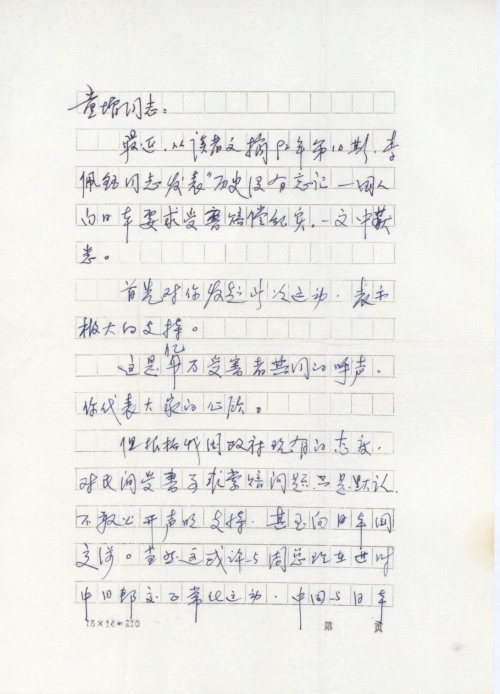 童增同志：
最近，从读者文摘92年第10期，李
佩钰同志发表"历史没有忘记—国人
向日本要求受害赔偿纪实，一文中获
悉。
首先对你发起此次运动，表示
极大的支持。
这是千万受害者共同的呼声，
亿
你代表大家的心欣。
但根据我国政府现有的态度，
对民间受害予求赏赔问题只是默认，
不敢公开声明支持，甚至向日本国
交涉。当然这或许与周总理在世时
中日邦交正常化运动，中国与日本
15×16=210
第 页